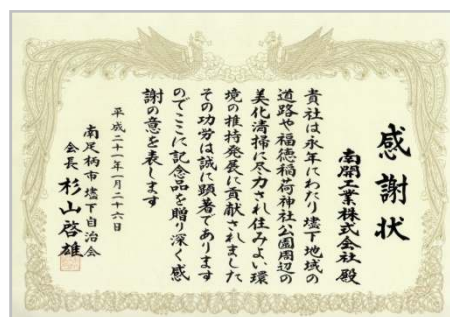 感謝状
南開工業株式会社 殿
貴社は永年にわたり壗下地域の
道路や福徳稲荷神社公園周辺の
美化清掃に尽力され住みよい環
境の推持発展に貢献されました
その功労は誠に顕著であります
のでここに記念品を贈り深く感
謝の意を表します
平成二十一年一月二十六日
南足柄市壗下自治会
会長 杉山啓雄